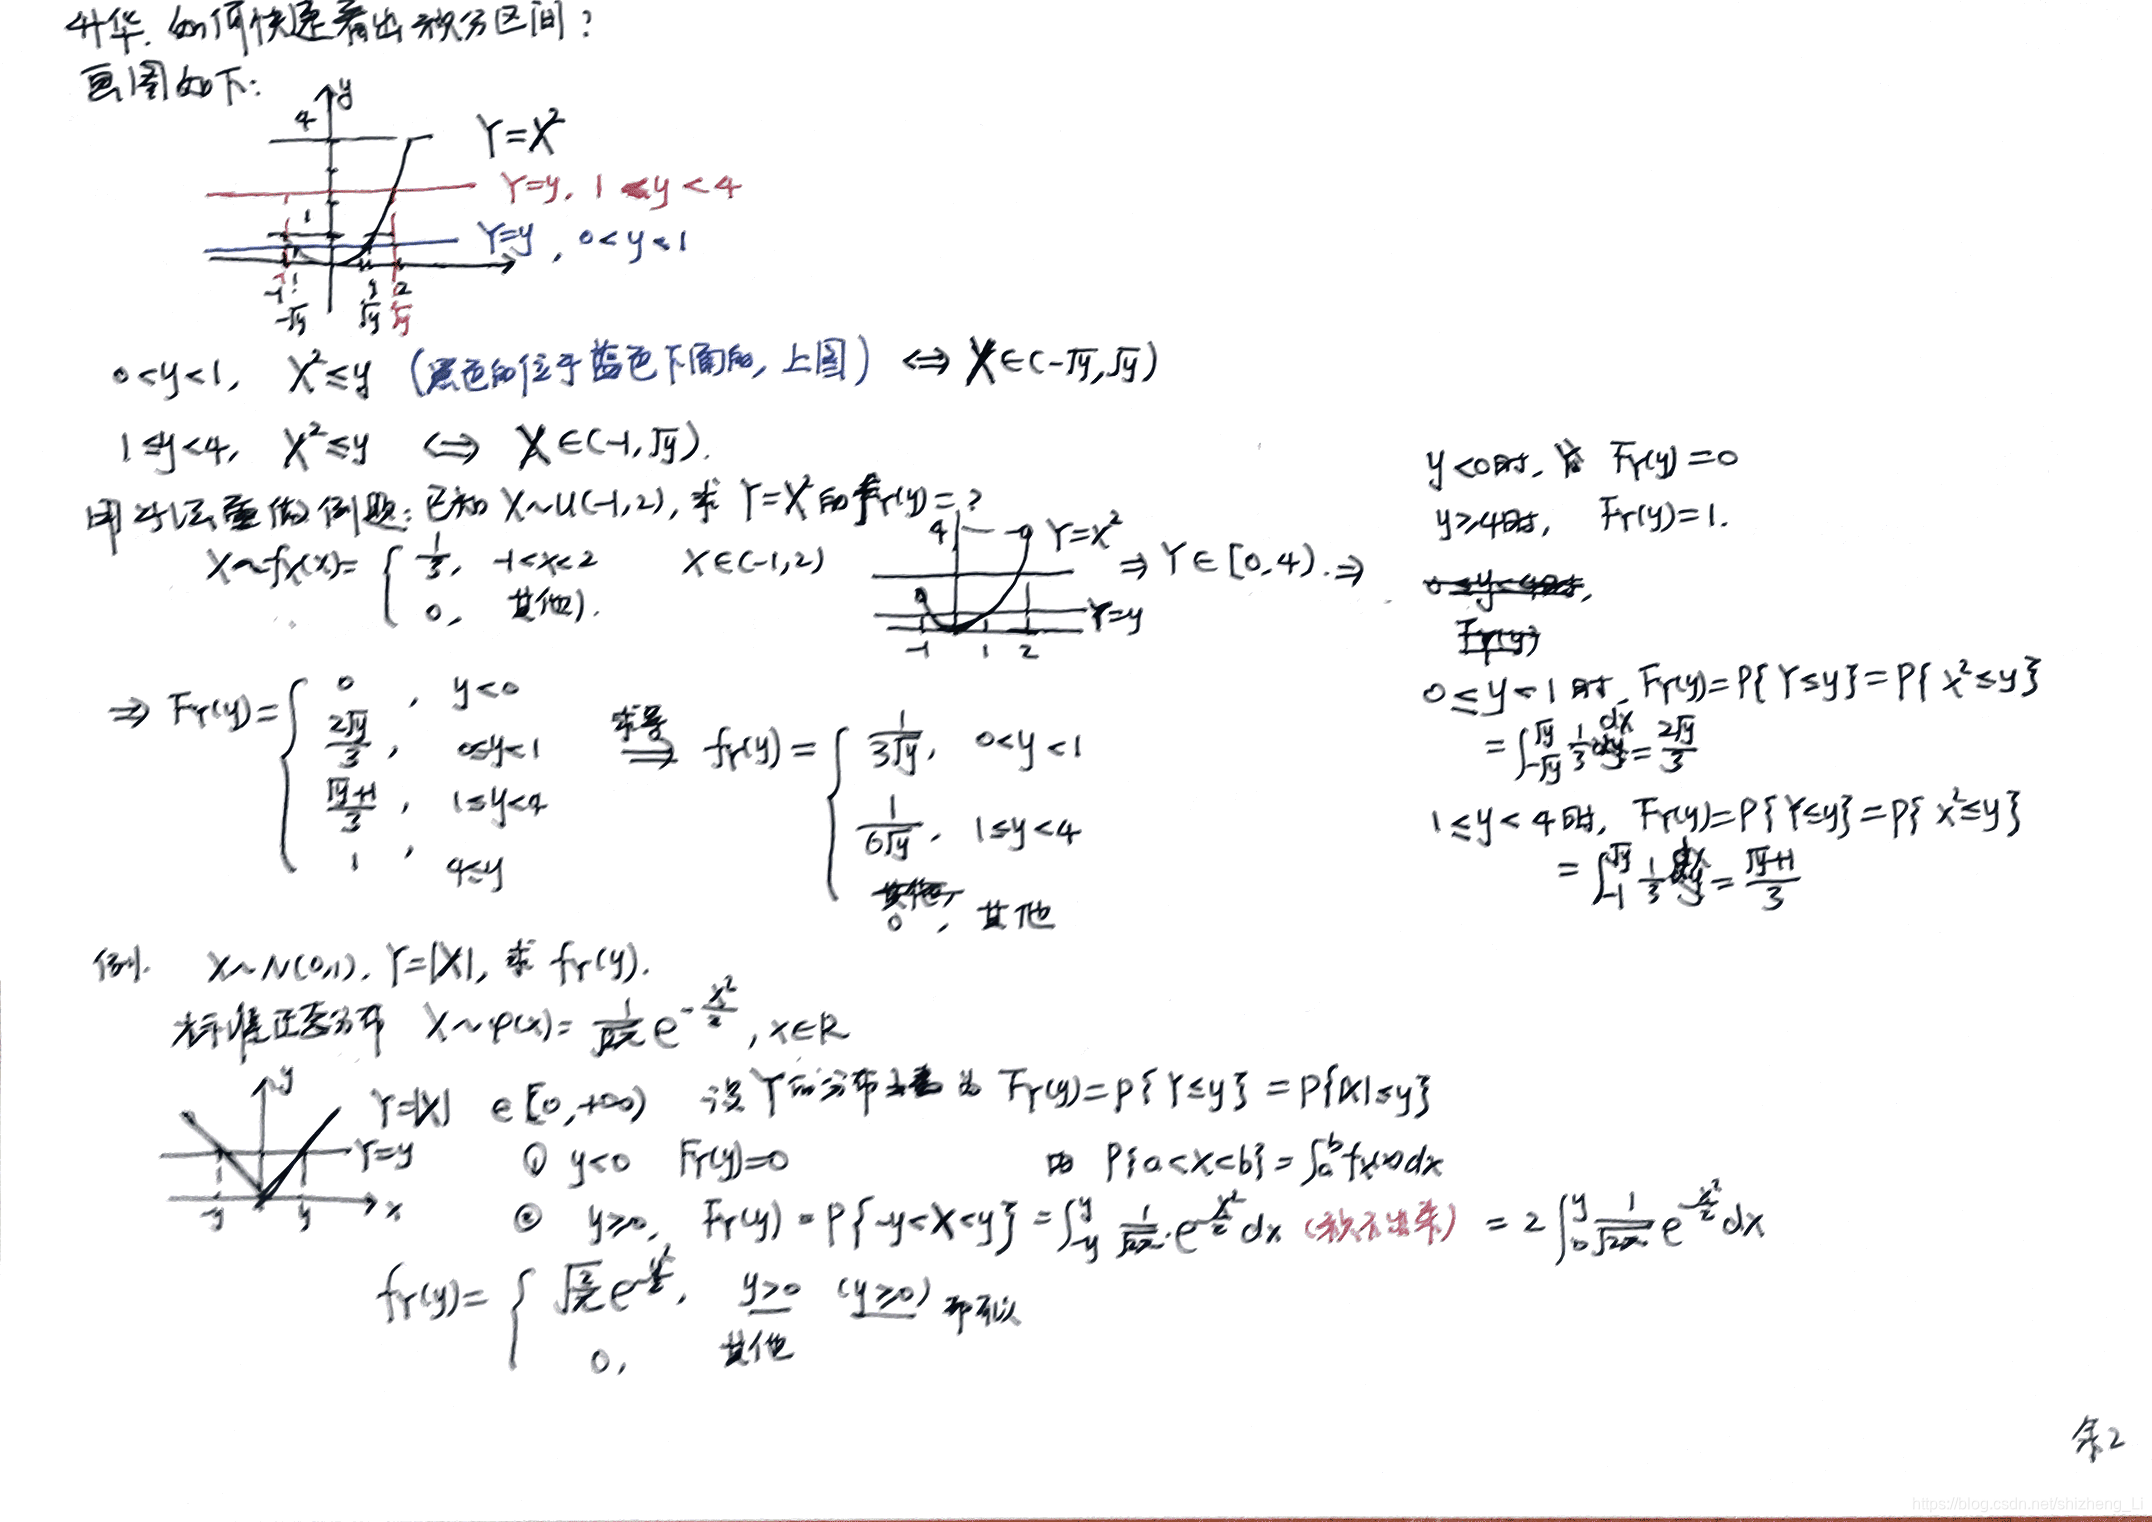 升华. 如何快速看出积分区间?
画图如下:
y
4
Y=X²
Y=y, 1≤y<4
1
Y=y, 0<y<1
-1 1 2
-√y √y √y
0<y<1, X²≤y (黑色的位于蓝色下面的, 上图) ⟺ X∈(-√y,√y)
1≤y<4, X²≤y ⟺ X∈(-1,√y).
用此法重做例题: 已知 X~U(-1,2), 求 Y=X²的f_Y(y)=?
X~f_X(x)={ 1/3, -1<x<2
0, 其他).
X∈(-1,2)
4
Y=X²
Y=y
-1 1 2
⇒ Y∈[0,4). ⇒
y<0时, F_Y(y)=0
y≥4时, F_Y(y)=1.
0≤y<4时,
F_Y(y)
0≤y<1时, F_Y(y)=P{Y≤y}=P{X²≤y}
=∫_{-√y}^{√y} 1/3 dx = 2√y/3
1≤y<4时, F_Y(y)=P{Y≤y}=P{X²≤y}
=∫_{-1}^{√y} 1/3 dx = (√y+1)/3
⇒ F_Y(y)={ 0, y<0
2√y/3, 0≤y<1
(√y+1)/3, 1≤y<4
1, 4≤y
求导 ⇒ f_Y(y)={ 1/(3√y), 0<y<1
1/(6√y), 1≤y<4
其他,
0, 其他
例. X~N(0,1), Y=|X|, 求 f_Y(y).
标准正态分布 X~φ(x)= 1/√(2π) e^{-x²/2}, x∈R
y
Y=y
-y y x
Y=|X| ∈[0,+∞) 设Y的分布函数为 F_Y(y)=P{Y≤y}=P{|X|≤y}
① y<0 F_Y(y)=0 由 P{a<X<b}=∫_a^b f_X(x)dx
② y≥0, F_Y(y)=P{-y<X<y}=∫_{-y}^{y} 1/√(2π)·e^{-x²/2}dx (积不出来) =2∫_0^y 1/√(2π) e^{-x²/2}dx
f_Y(y)={ √(2/π) e^{-y²/2}, y>0 (y≥0) 都可以
0, 其他
https://blog.csdn.net/shizheng_Li